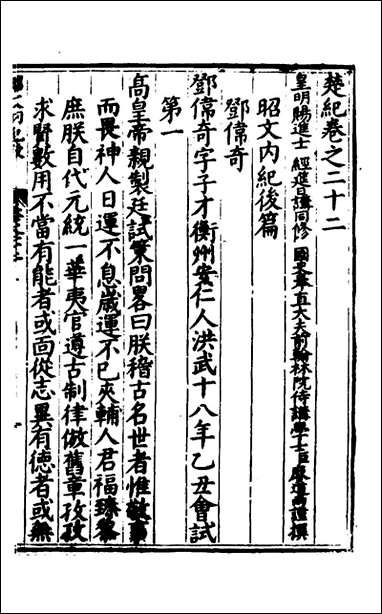 楚紀卷之二十二
皇明賜進士 經進日講同修 國史奉直大夫前翰林院侍講學士臣廖道南謹撰
昭文内紀後篇
鄧偉奇
鄧偉奇字子才衡州安仁人洪武十八年乙丑會試
第一
高皇帝親製廷試策問畧曰朕稽古名世者惟敬事
而畏神人日運不息歲運不已夾輔人君福臻黎
庶朕自代元統一華夷官遵古制律倣舊章孜孜
求賢數用不當有能者或面從志異有德者或無